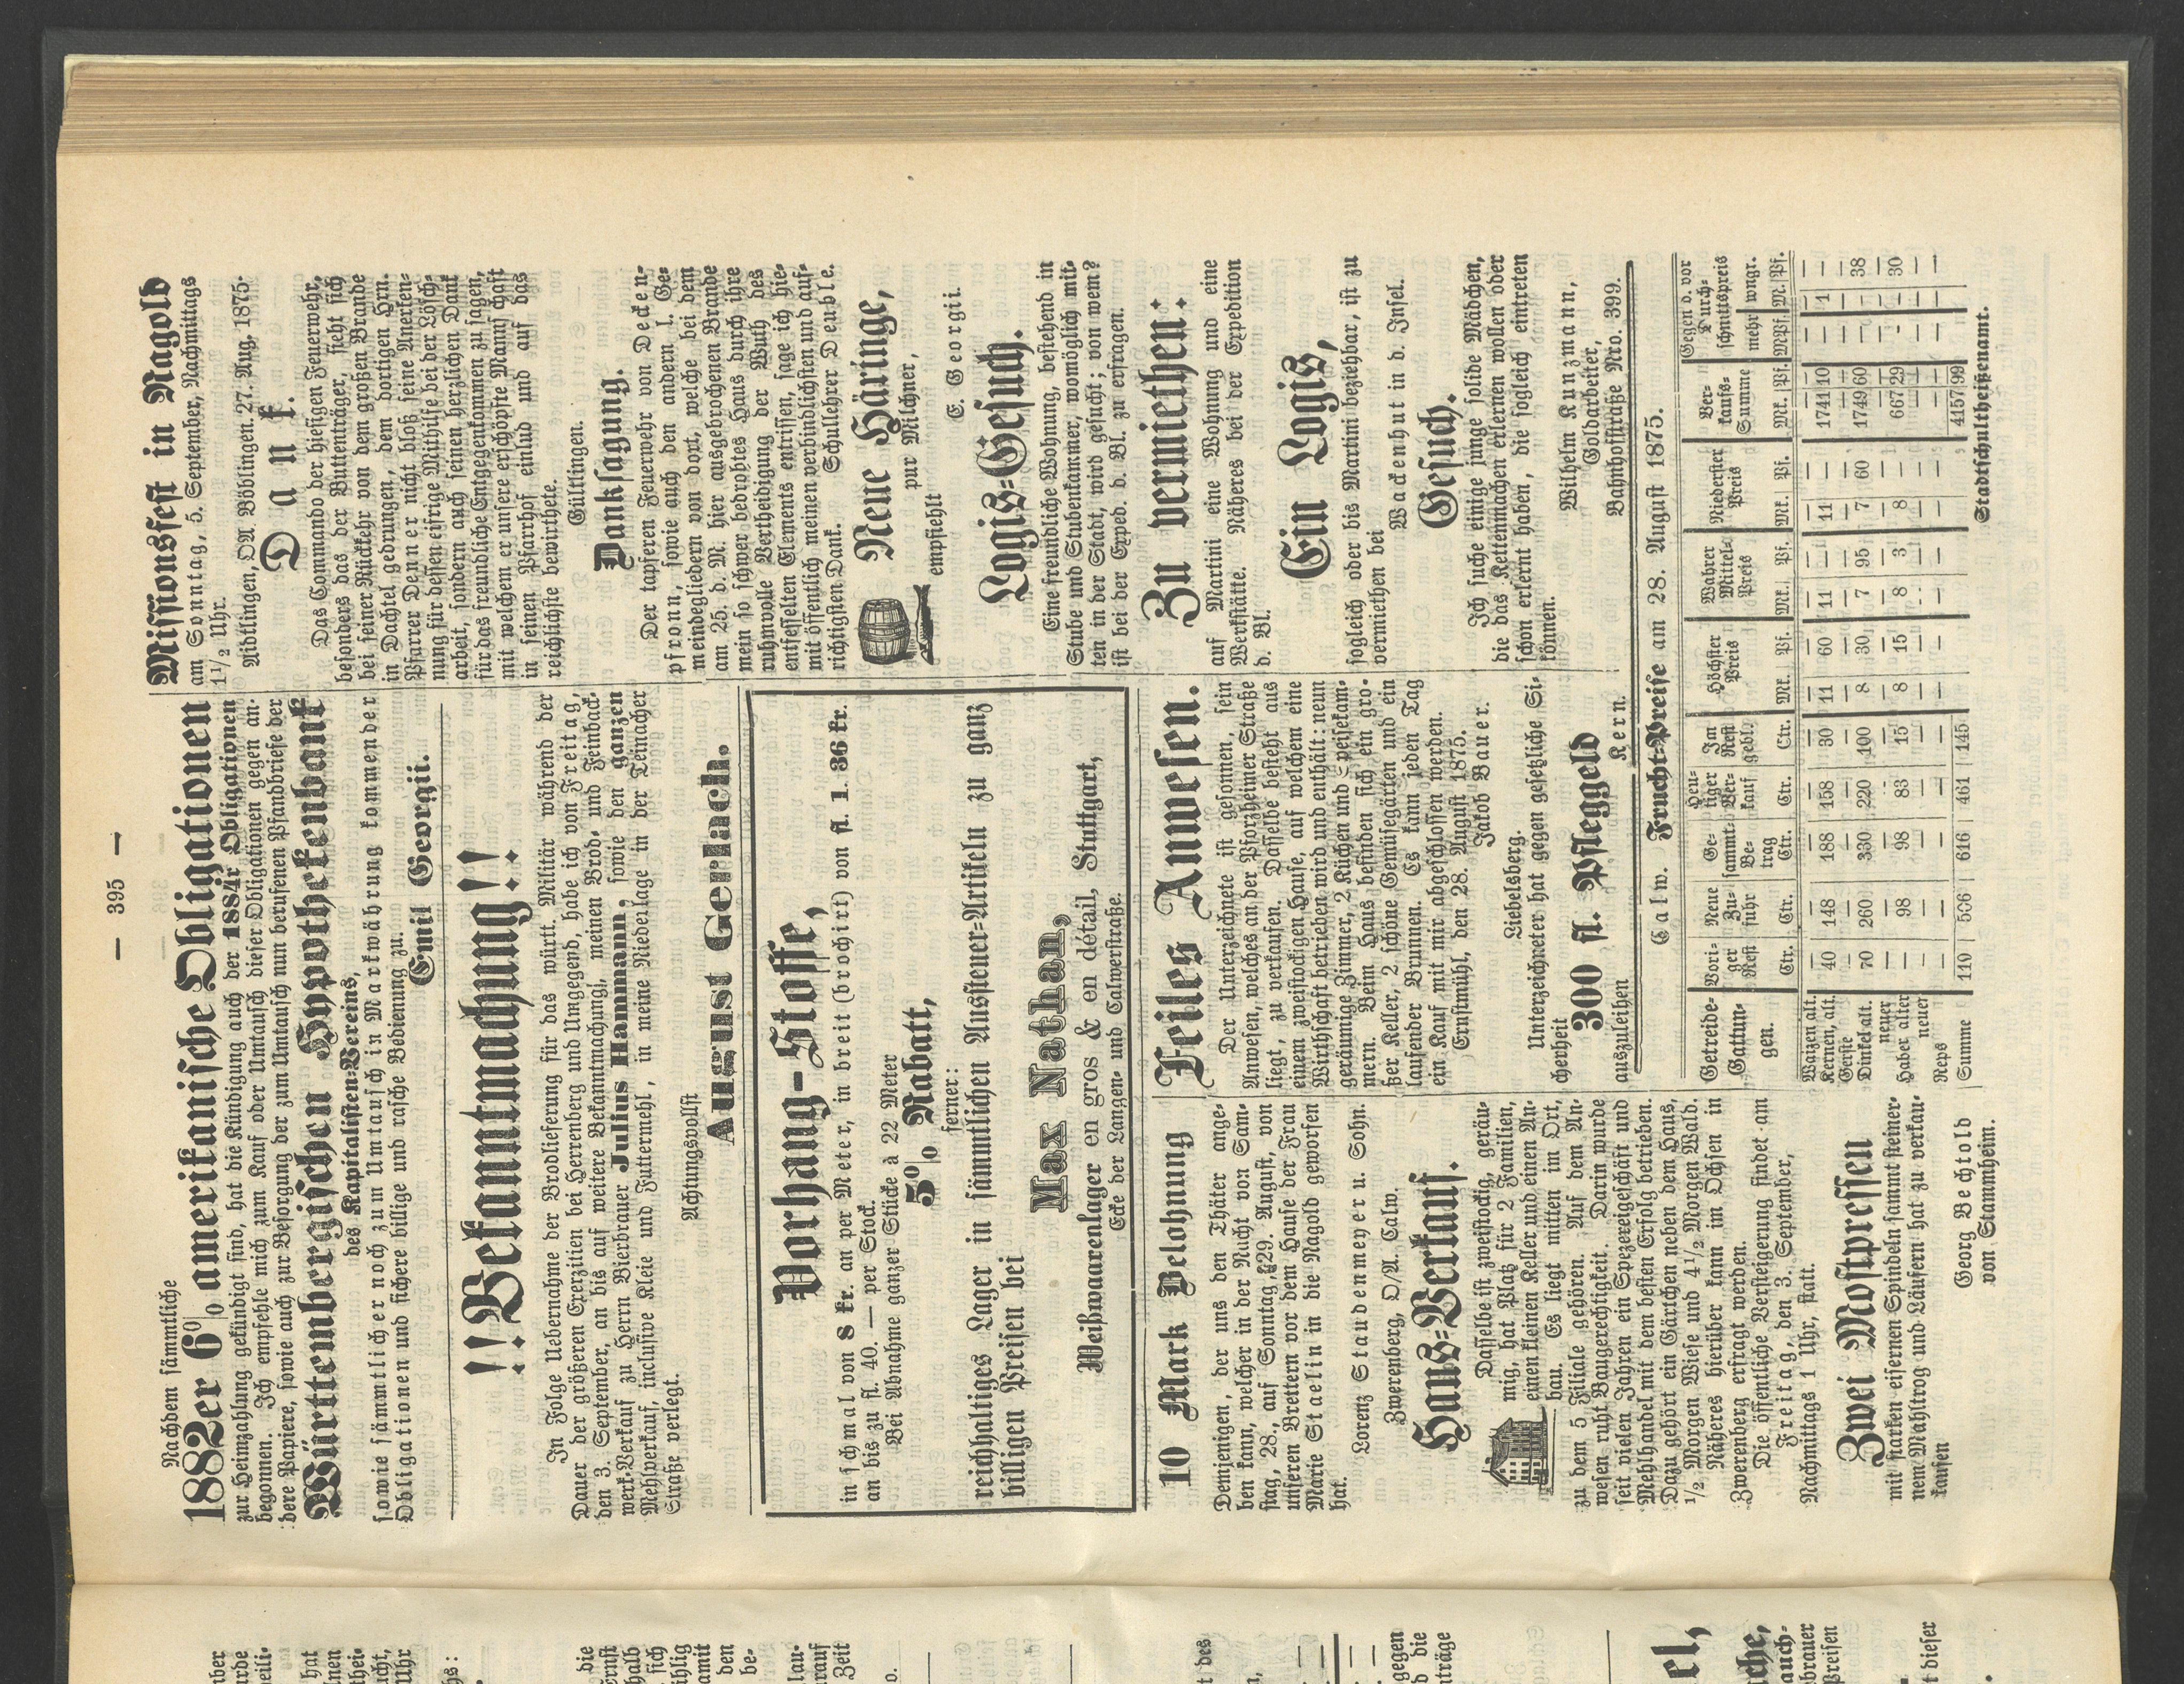 — 395 —
Nachdem sämmtliche
1882er 6% amerikanische Obligationen
zur Heimzahlung gekündigt sind, hat die Kündigung auch der 1884r Obligationen
begonnen. Ich empfehle mich zum Kauf oder Umtausch dieser Obligationen gegen an-
dere Papiere, sowie auch zur Besorgung der zum Umtausch nun berufenen Pfandbriefe der
Württembergischen Hypothekenbank
des Kapitalisten-Vereins,
sowie sämmtlicher noch zum Umtausch in Markwährung kommender
Obligationen und sichere billige und rasche Bedienung zu.
Emil Georgii.
!!Bekanntmachung!!
In Folge Uebernahme der Brodlieferung für das württ. Militär während der
Dauer der größeren Exerzitien bei Herrenberg und Umgegend, habe ich von Freitag,
den 3. September, an bis auf weitere Bekanntmachung, meinen Brod- und Feinback-
werk-Verkauf zu Herrn Bierbrauer Julius Hammann, sowie den ganzen
Mehlverkauf, inclusive Kleie und Futtermehl, in meine Niederlage in der Teinacher
Straße verlegt.
Achtungsvollst
August Gerlach.
Vorhang-Stoffe,
in schmal von 8 kr. an per Meter, in breit (brochirt) von fl. 1. 36 kr.
an bis zu fl. 40. — per Stock.
Bei Abnahme ganzer Stücke à 22 Meter
5% Rabatt,
ferner:
reichhaltiges Lager in sämmtlichen Aussteuer-Artikeln zu ganz
billigen Preisen bei
Max Nathan,
Weißwaarenlager en gros & en détail, Stuttgart,
Ecke der Langen- und Calwerstraße.
10 Mark Belohnung
Demjenigen, der uns den Thäter ange-
ben kann, welcher in der Nacht von Sam-
stag, 28., auf Sonntag, 29. August, von
unseren Brettern vor dem Hause der Frau
Marie Staelin in die Nagold geworfen
hat.
Lorenz Staudenmeyer u. Sohn.
Zwerenberg, O/A. Calw.
Haus-Verkauf.
Dasselbe ist zweistockig, geräu-
mig, hat Platz für 2 Familien,
einen kleinen Keller und einen An-
bau. Es liegt mitten im Ort,
zu dem 5 Filiale gehören. Auf dem An-
wesen ruht Baugerechtigkeit. Darin wurde
seit vielen Jahren ein Spezereigeschäft und
Mehlhandel mit dem besten Erfolg betrieben.
Dazu gehört ein Gärtchen neben dem Haus,
1/2 Morgen Wiese und 4 1/2 Morgen Wald.
Näheres hierüber kann im Ochsen in
Zwerenberg erfragt werden.
Die öffentliche Versteigerung findet am
Freitag, den 3. September,
Nachmittags 1 Uhr, statt.
Zwei Mostpressen
mit starken eisernen Spindeln sammt steiner-
nem Mahltrog und Läufern hat zu verkau-
kaufen
Georg Bechtold
von Stammheim.
Feiles Anwesen.
Der Unterzeichnete ist gesonnen, sein
Anwesen, welches an der Pforzheimer Straße
liegt, zu verkaufen. Dasselbe besteht aus
einem zweistockigen Hause, auf welchem eine
Wirthschaft betrieben wird und enthält: neun
geräumige Zimmer, 2 Küchen und Speisekam-
mern. Beim Haus befinden sich ein gro-
ßer Keller, 2 schöne Gemüsegärten und ein
laufender Brunnen. Es kann jeden Tag
ein Kauf mit mir abgeschlossen werden.
Ernstmühl, den 28. August 1875.
Jakob Bauer.
Liebelsberg.
Unterzeichneter hat gegen gesetzliche Si-
cherheit
300 fl. Pfleggeld
auszuleihen
Kern.
Missionsfest in Nagold
am Sonntag, 5. September, Nachmittags
1 1/2 Uhr.
Aidtlingen, OA. Böblingen. 27. Aug. 1875.
Dank.
Das Commando der hiesigen Feuerwehr,
besonders das der Buttenträger, sieht sich
bei seiner Rückkehr von dem großen Brande
in Dachtel gedrungen, dem dortigen Hrn.
Pfarrer Denner nicht bloß seine Anerken-
nung für dessen eifrige Mithilfe bei der Lösch-
arbeit, sondern auch seinen herzlichen Dank
für das freundliche Entgegenkommen zu sagen,
mit welchem er unsere erschöpfte Mannschaft
in seinen Pfarrhof einlud und auf das
reichlichste bewirthete.
Gültlingen.
Danksagung.
Der tapferen Feuerwehr von Decken-
pfronn, sowie auch den andern l. Ge-
meindegliedern von dort, welche bei dem
am 25. d. M. hier ausgebrochenen Brande
mein so schwer bedrohtes Haus durch ihre
ruhmvolle Vertheidigung der Wuth des
entfesselten Elements entrissen, sage ich hie-
mit öffentlich meinen verbindlichsten und auf-
richtigsten Dank. Schullehrer Deuble.
Neue Häringe,
pur Milchner,
empfiehlt
E. Georgii.
Logis-Gesuch.
Eine freundliche Wohnung, bestehend in
Stube und Stubenkammer, womöglich mit-
ten in der Stadt, wird gesucht; von wem?
ist bei der Exped. d. Bl. zu erfragen.
Zu vermiethen:
auf Martini eine Wohnung und eine
Werkstätte. Näheres bei der Expedition
d. Bl.
Ein Logis,
sogleich oder bis Martini beziehbar, ist zu
vermiethen bei
Wackenhut in d. Insel.
Gesuch.
Ich suche einige junge solide Mädchen,
die das Kettenmachen erlernen wollen oder
schon erlernt haben, die sogleich eintreten
können.
Wilhelm Kunzmann,
Goldarbeiter,
Bahnhofstraße Nro. 399.
Calw. Frucht-Preise am 28. August 1875.
Getreide-Gattungen. | Voriger Rest Ctr. | Neue Zufuhr Ctr. | Gesammt-Betrag Ctr. | Heutiger Verkauf Ctr. | Im Rest gebl. Ctr. | Höchster Preis Mk. Pf. | Wahrer Mittel-Preis Mk. Pf. | Niederster Preis Mk. Pf. | Verkaufs-Summe Mk. Pf. | Gegen d. vor Durchschnittspreis mehr M. Pf. wngr. M. Pf.
Waizen alt.
Kernen, alt. 40 148 188 158 30 11 60 11 — 11 — 1741 10 — — 1 —
Gerste — — — — —
Dinkel alt. 70 260 330 220 100 8 30 7 95 7 60 1749 60 — — — 38
neuer — — — — —
Haber alter — 98 98 83 15 8 15 8 3 8 — 667 29 — — — 30
neuer — — — — —
Reps — — — — —
Summe 110 506 616 461 145 4157 99
Stadtschultheißenamt.